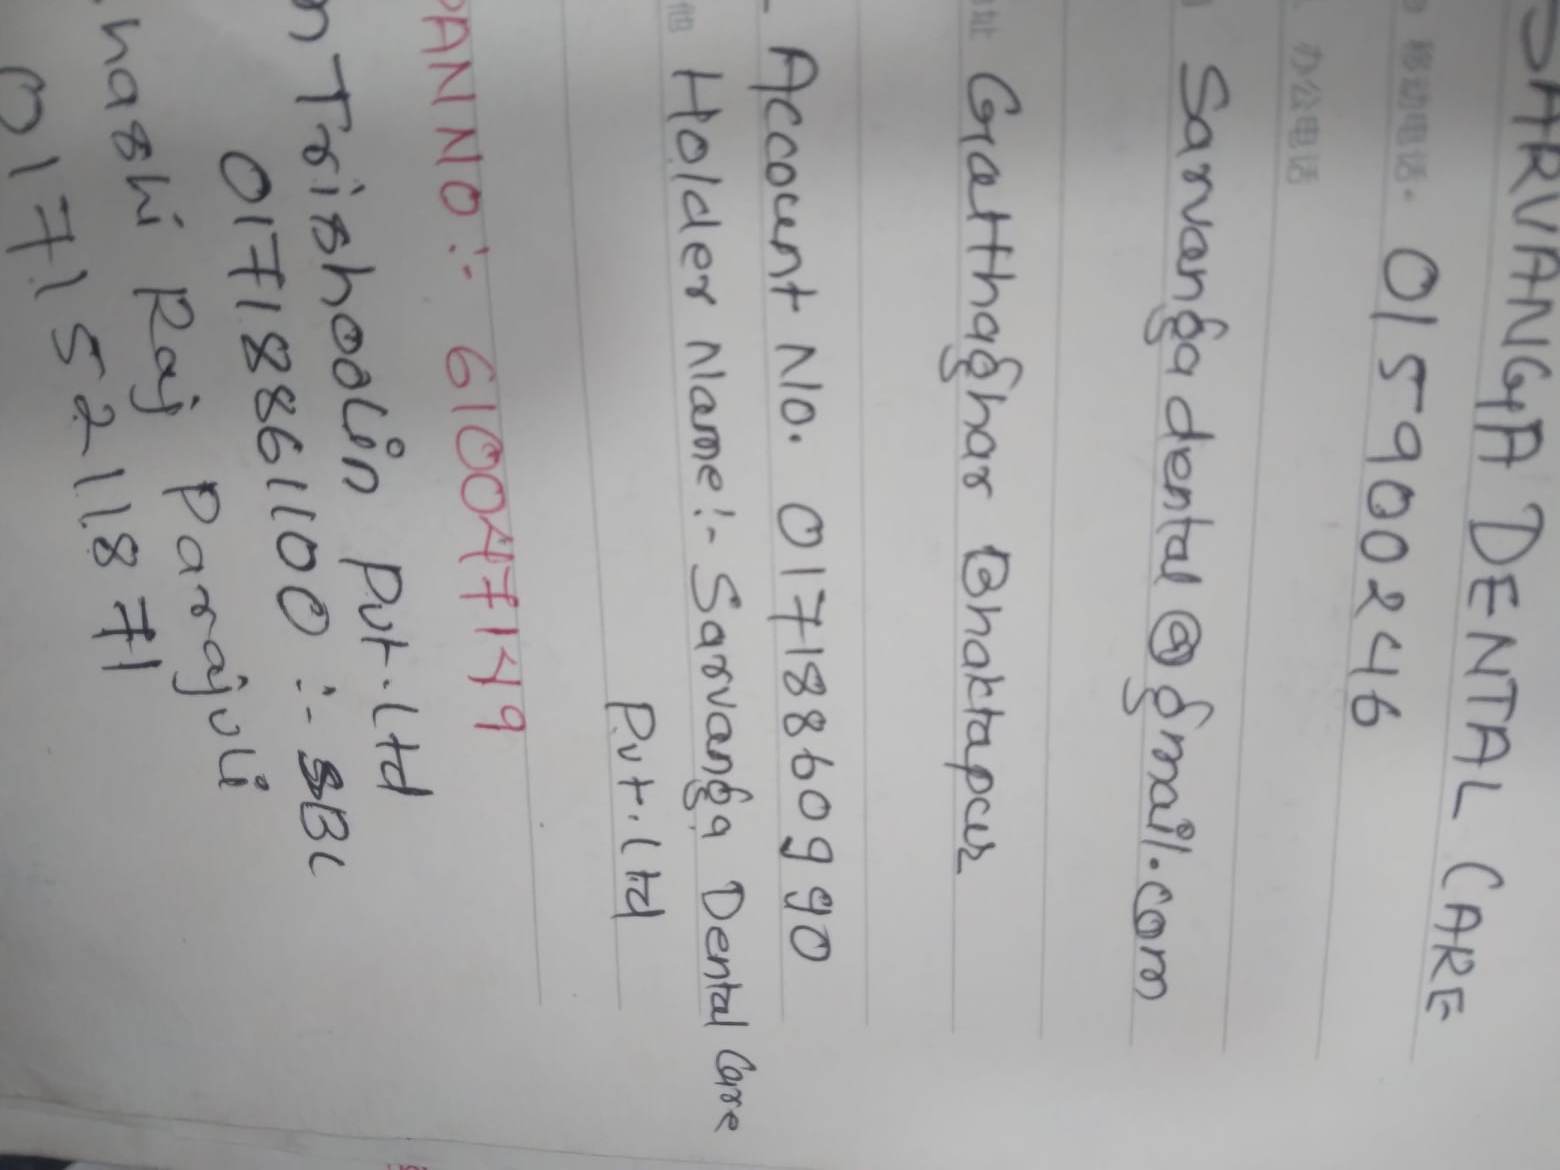 SARVANGA DENTAL CARE
移动电话 015900246
办公电话
Sarvangadental@gmail.com
址 Gatthaghar Bhaktapur
Account No. 01718860990
他 Holder Name:- Sarvanga Dental Care
Pvt.Ltd
PAN NO:- 610047149
n Trishoolin Pvt.Ltd
01718861100:- SBL
hashi Raj Parajuli
01715211871